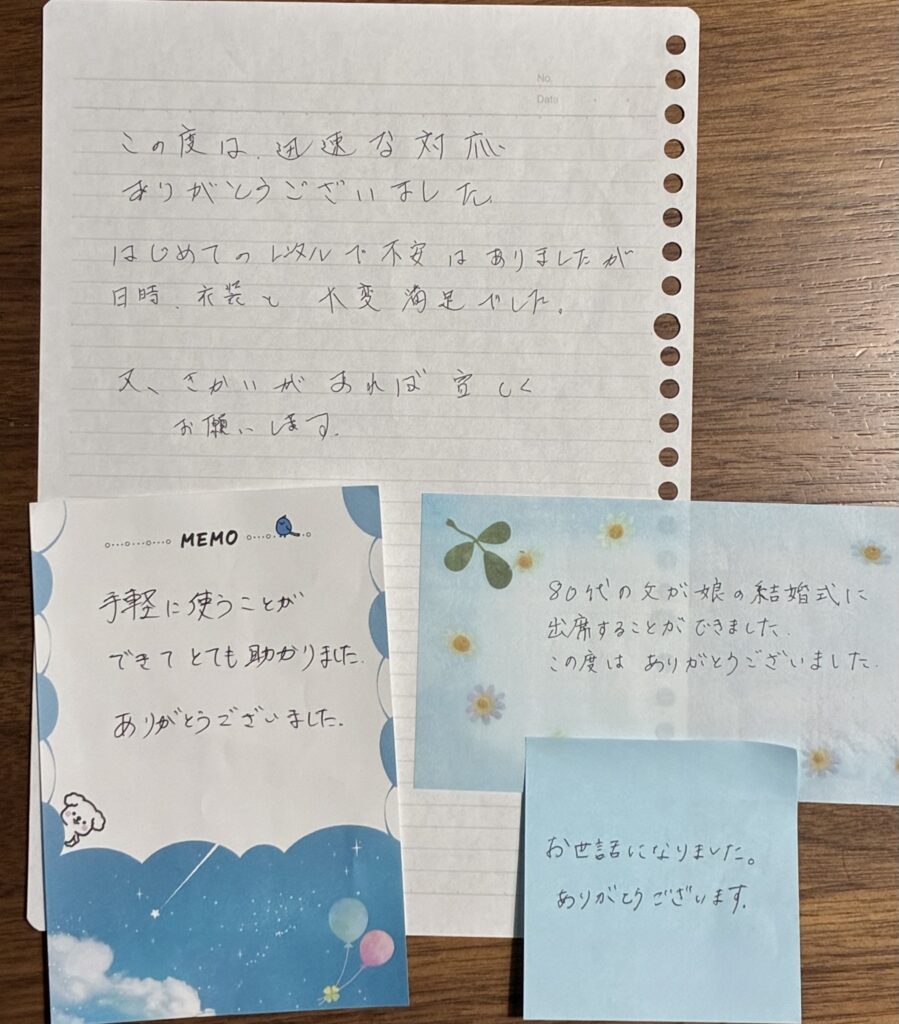 No.
Date
この度は、迅速な対応
ありがとうございました。
はじめてのレンタルで不安はありましたが
日時、衣装と大変満足でした。
又、きかいがあれば宜しく
お願いします。
MEMO
手軽に使うことが
できてとても助かりました。
ありがとうございました。
80代の父が娘の結婚式に
出席することができました。
この度はありがとうございました。
お世話になりました。
ありがとうございます。